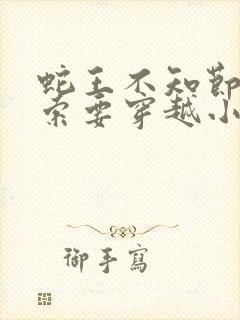 蛇王不知節
索要穿越小
御手寫